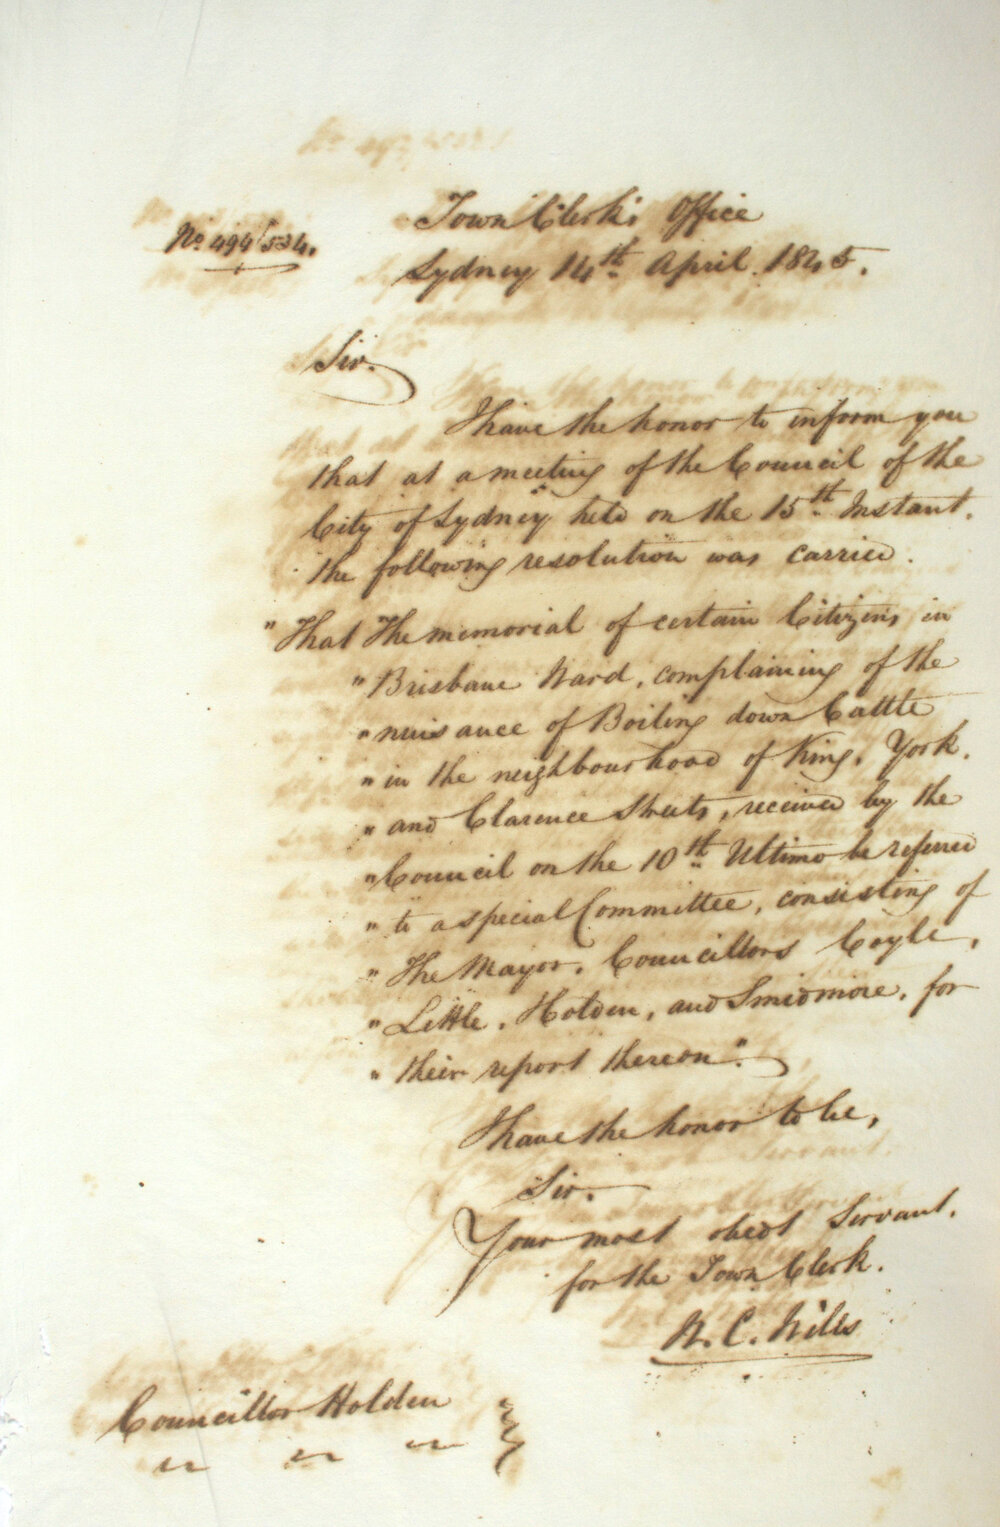 No. 494/534.
Town Clerk's Office
Sydney 14th April 1845.
Sir.
I have the honor to inform you
that at a meeting of the Council of the
City of Sydney held on the 15th Instant.
the following resolution was carried.
"That The memorial of certain Citizens in
"Brisbane Ward, complaining of the
"nuisance of Boiling down Cattle
"in the neighbourhood of King, York.
"and Clarence Streets, received by the
"Council on the 10th Ultimo be referred
"to a special Committee, consisting of
"The Mayor. Councillors Coyle,
"Little, Holden, and Smidmore, for
"their report thereon".
I have the honor to be,
Sir.
Your most obedt Servant.
for the Town Clerk.
W. C. Wills
Councillor Holden